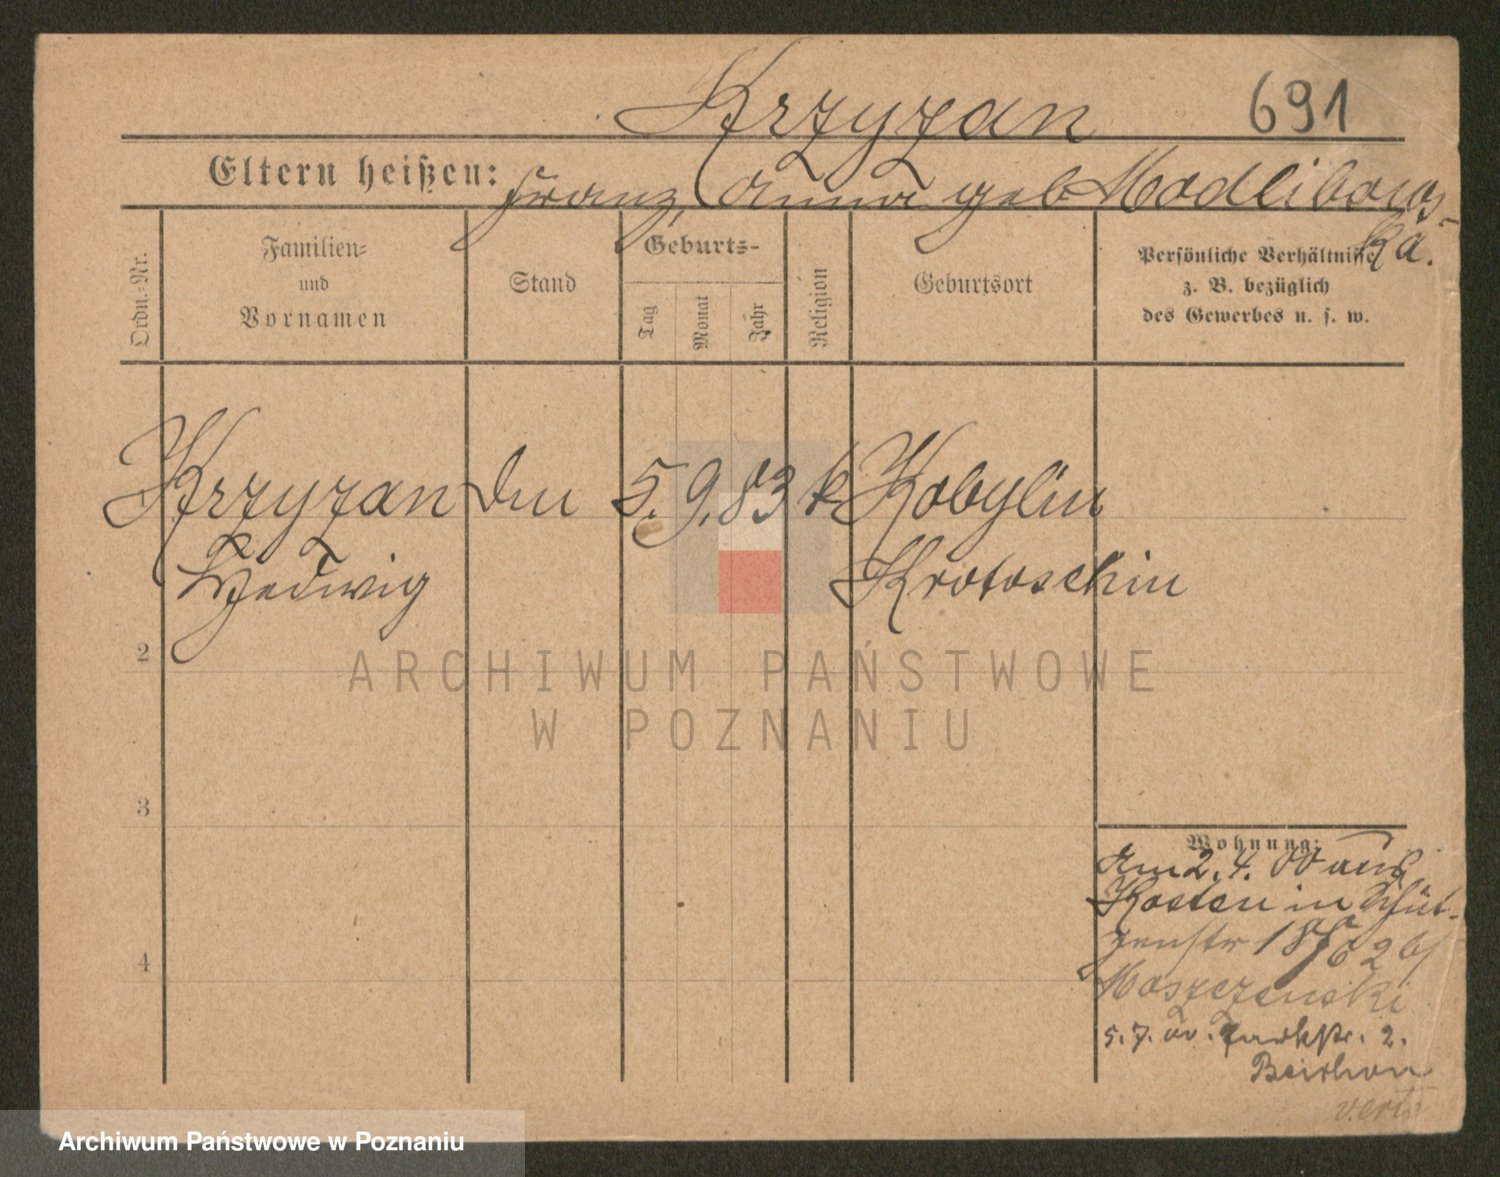 Krzyzan 691
Eltern heißen: Franz, Anna geb Modlibows-
ka.
Ordn.-Nr.
Familien-
und
Vornamen
Stand
Geburts-
Tag
Monat
Jahr
Religion
Geburtsort
Persönliche Verhältnisse
z. B. bezüglich
des Gewerbes u. s. w.
Krzyzan 5. 9. 83 k Kobylin
Hedwig Krotoschin
2
3
4
Wohnung:
Am 2. 4. 00 aus
Kosten in Schüt-
zenstr
Moszczenski
5. 7. 00. Parkstr. 2.
ARCHIWUM PAŃSTWOWE
W POZNANIU
Archiwum Państwowe w Poznaniu